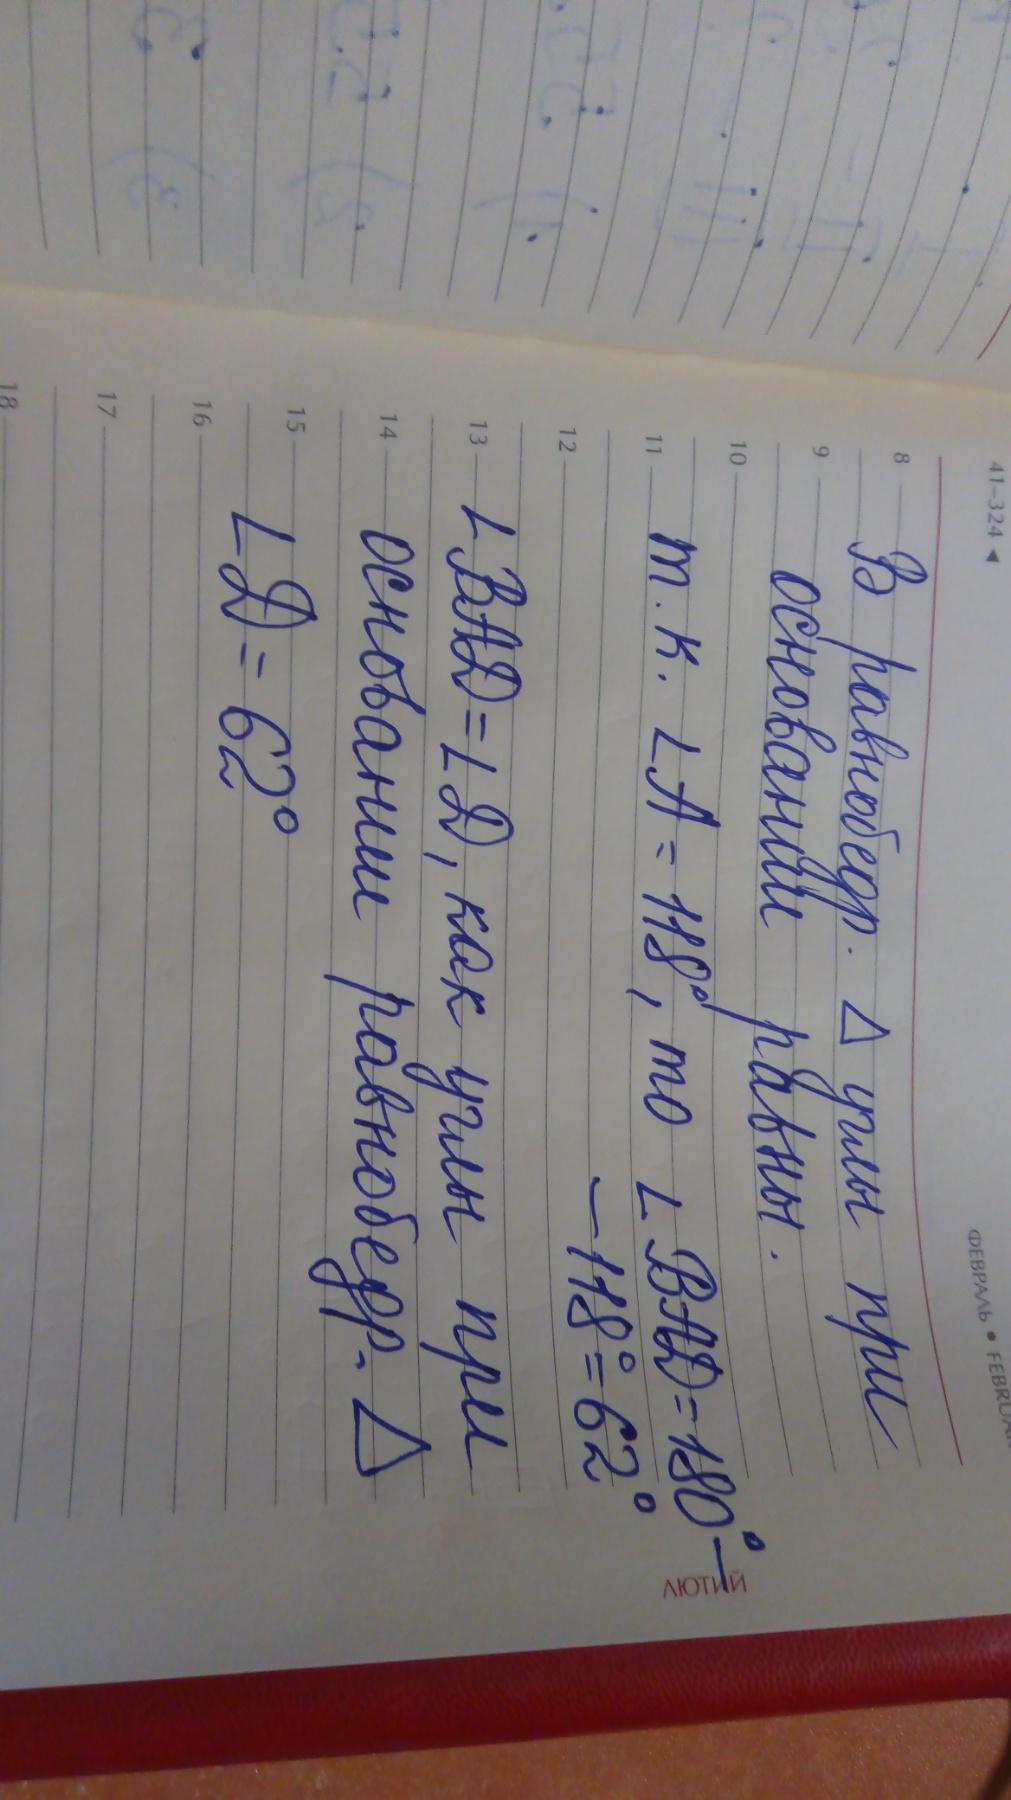 41–324 ◄
ФЕВРАЛЬ • FEBRUA
8 В равнобедр. Δ углы при
9 основании равны.
10
11 т.к. ∠A = 118°, то ∠BAD = 180° –
ЛЮТИЙ
12 – 118° = 62°
13 ∠BAD = ∠D, как углы при
14 основании равнобедр. Δ
15 ∠D = 62°
16
17
18